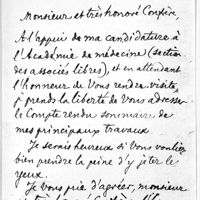 Monsieur et très honoré Confrère,
A l'appui de ma candidature à
l'Académie de médecine (section
des associés libres), et en attendant
l'honneur de Vous rendre visite,
je prends la liberté de Vous adresser
le Compte rendu sommaire de
mes principaux travaux.
Je serais heureux si Vous vouliez
bien prendre la peine d'y jeter le
yeux.
Je Vous prie d'agréer, monsieur